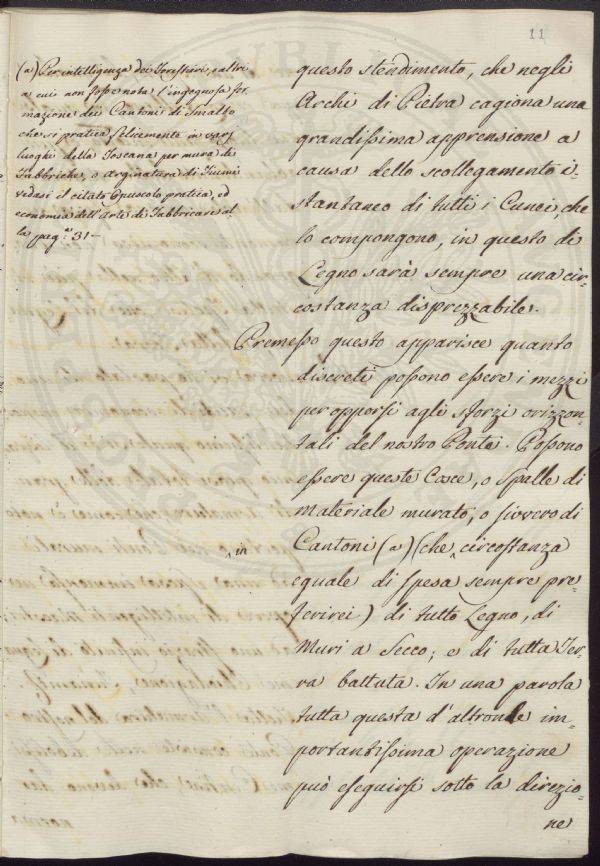 11
(a) Per intelligenza dei Forestieri, e altri
a cui non fosse nota l'ingegnosa for-
mazione dei Cantoni di Smalto
che si pratica felicemente in varj
luoghi della Toscana per mura di
Fabbriche, o Arginatura di Fiumi
vedasi il citato Opuscolo pratica, ed
economia dell'Arte di Fabbricare al
la pag.ª 31-
questo stendimento, che negli
Archi di Pietra cagiona una
grandissima apprensione a
causa dello scollegamento i-
stantaneo di tutti i Cunei, che
lo compongono, in questo di
Legno sarà sempre una cir-
costanza disprezzabile.
Premesso questo apparisce quanto
discreti possono essere i mezzi
per opporsi agli sforzi orizzon-
tali del nostro Ponte. Possono
essere queste Cosce, o Spalle di
materiale murato, o sivvero di
Cantoni (a) (che in circostanza
eguale di spesa sempre pre-
ferirei) di tutto Legno, di
Muri a Secco; e di tutta Ter-
ra battuta. In una parola
tutta questa d'altronde im-
portantissima operazione
può eseguirsi sotto la direzio-
ne